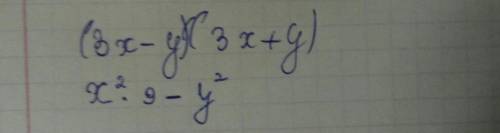 (3x-y)(3x+y)
x²·9-y²